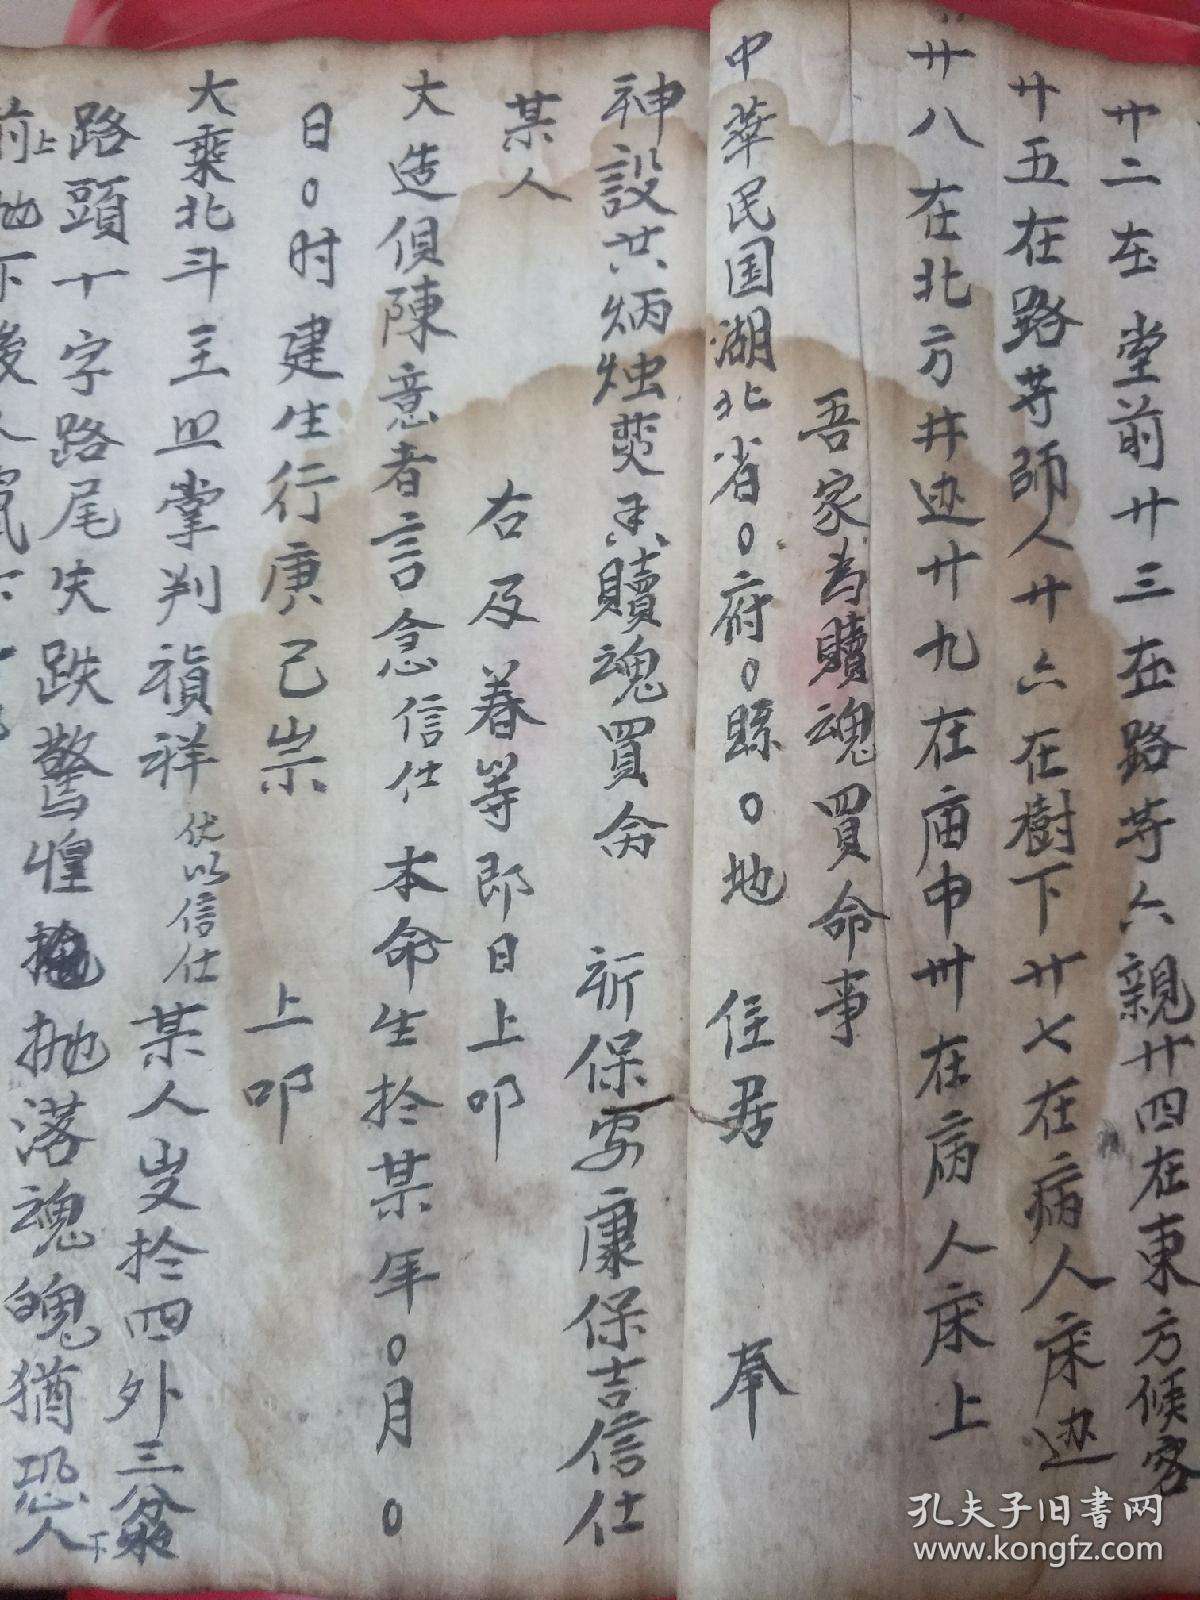 廿二在堂前廿三在路苛六親廿四在東方候客
廿五在路苛師人廿六在樹下廿七在病人床边
廿八在北方井边廿九在庙中卅在病人床上
吾家為贖魂買命事
中華民国湖北省○府○縣○地 住居 奉
神設共炳烛焚香贖魂買命 祈保安康保吉信仕
某人
右及眷等即日上叩
大造俱陳意者言念信仕 本命生扵某年○月○
日○时建生行庚己崇 上叩
大乘北斗主照掌判禎祥伏以信仕某人岁扵四外三岔
路頭十字路尾失跌驚惶抛落魂魄猶恐人
上
下
前地下後
孔夫子旧书网
www.kongfz.com